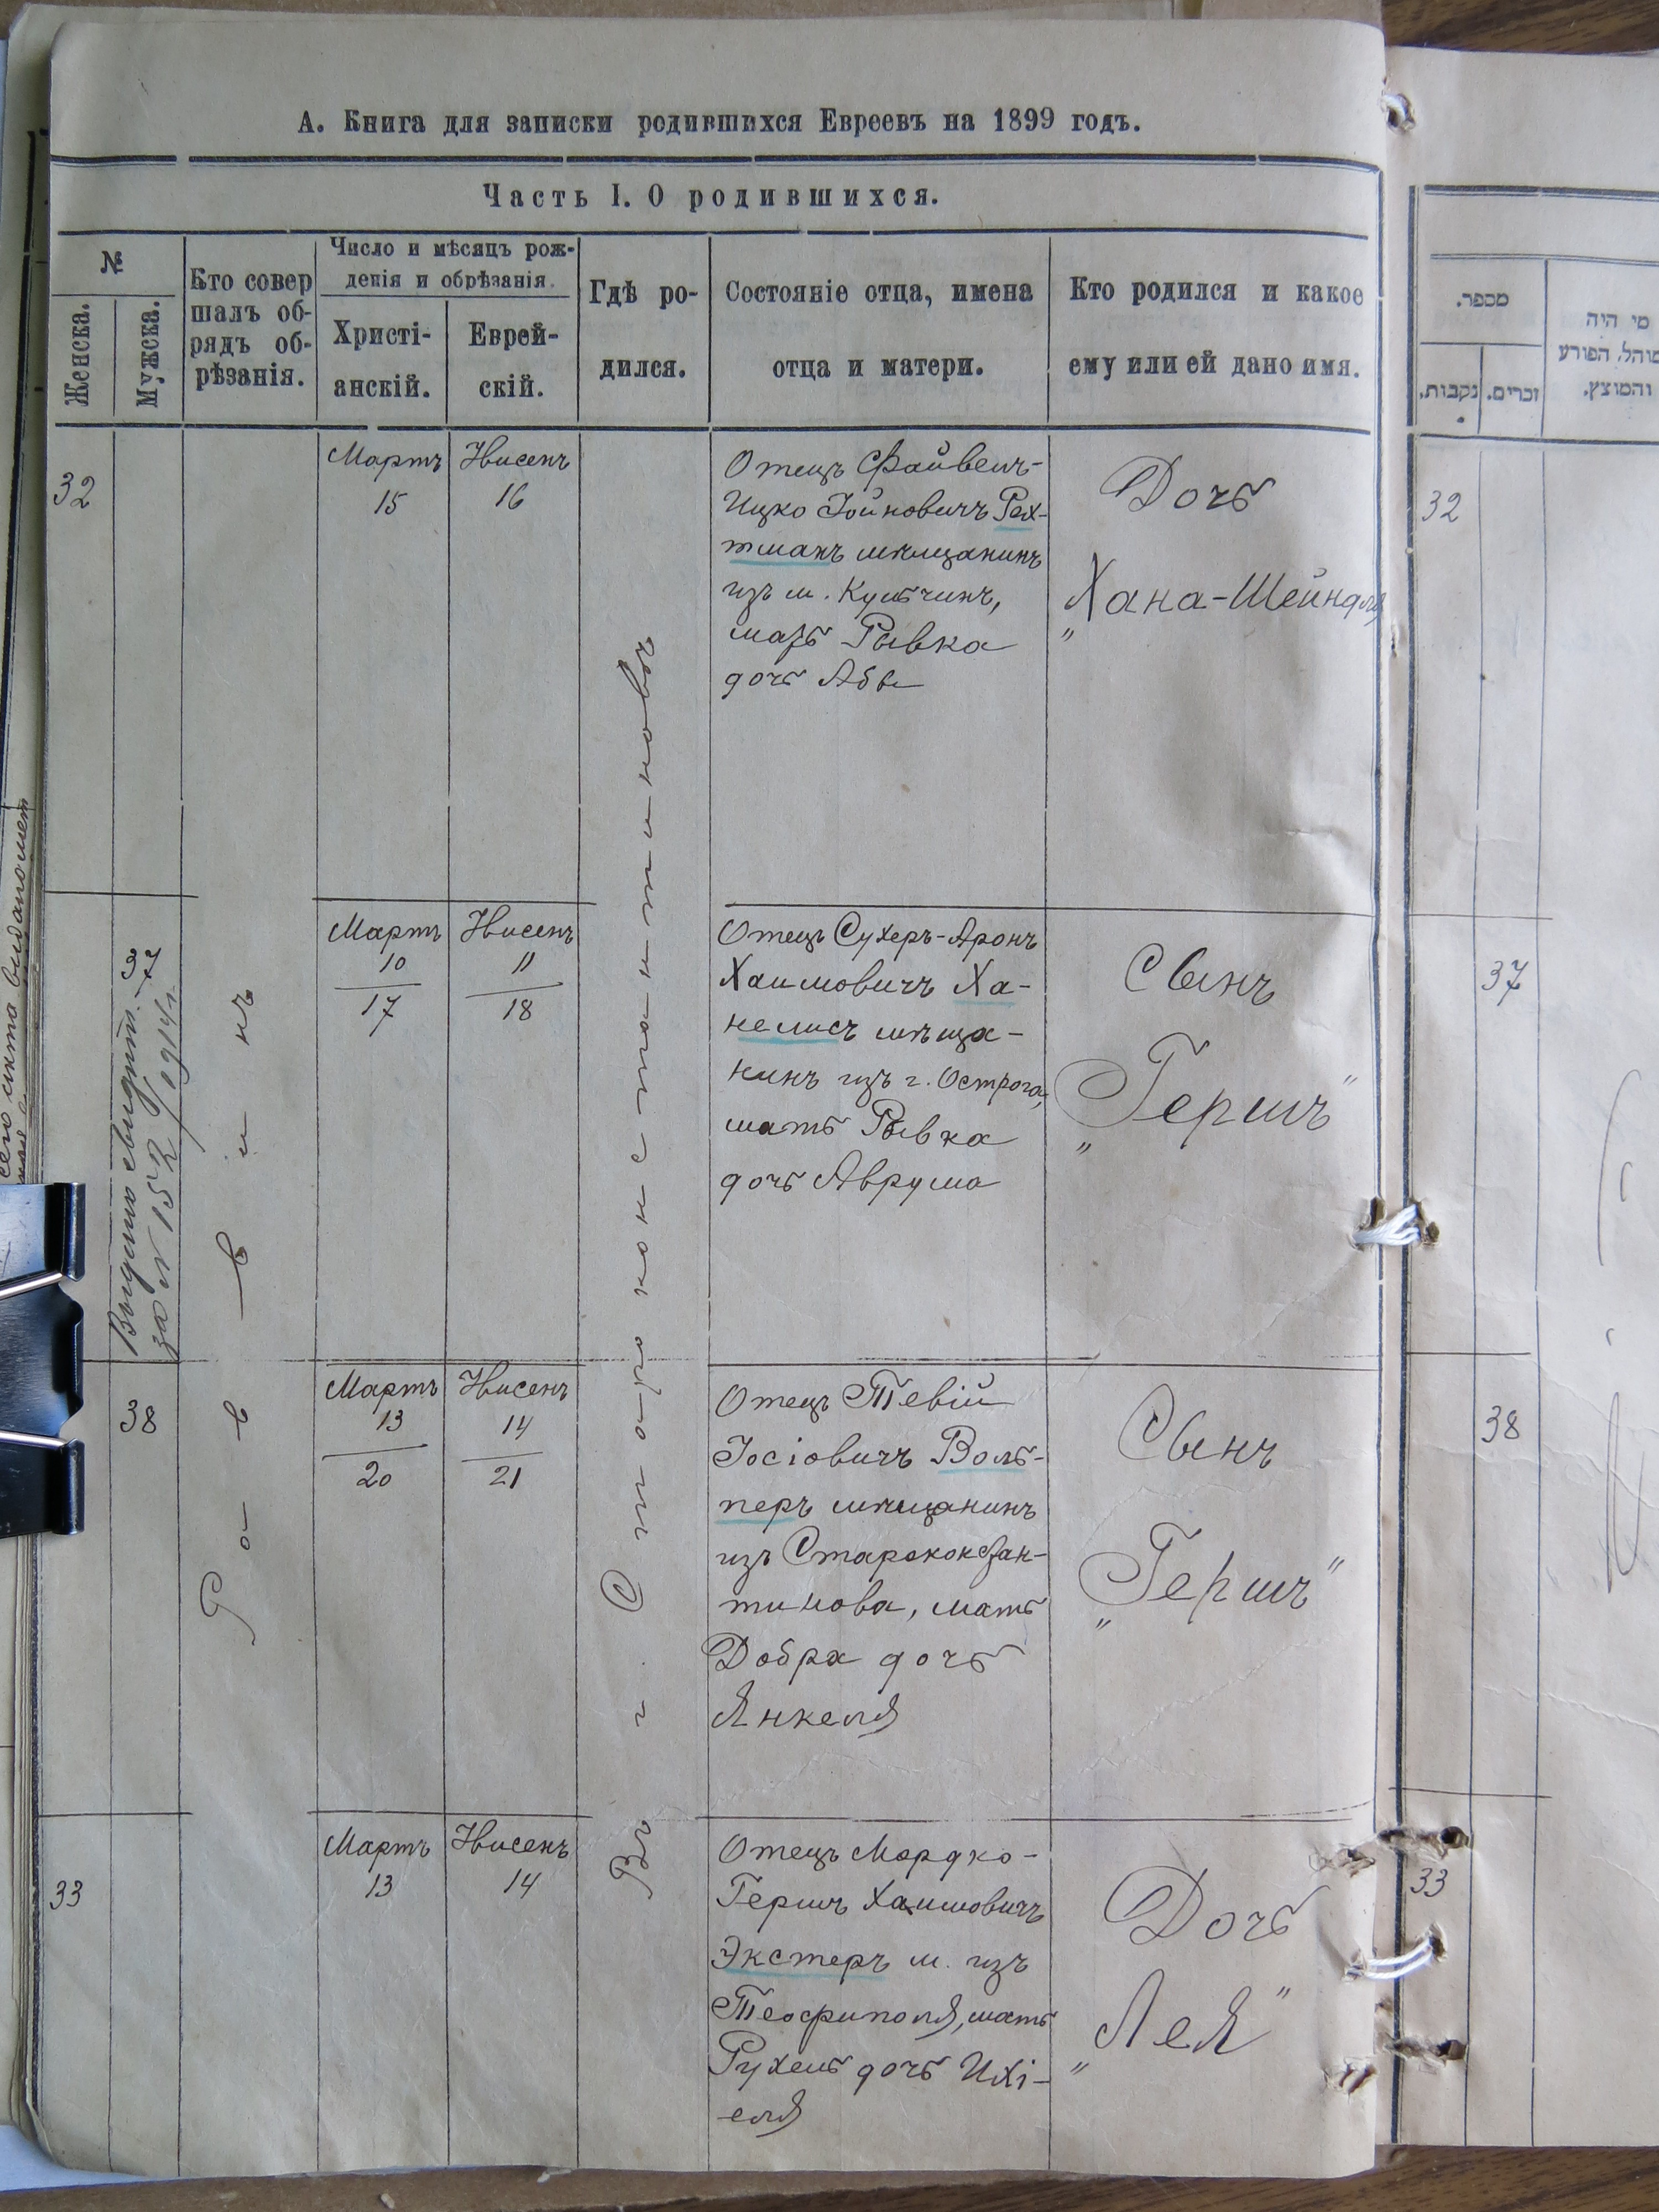 А. Книга для записки родившихся Евреевъ на 1899 годъ.
Часть I. О родившихся.
№
Женска.
Мужска.
Кто совер
шалъ об-
рядъ об-
рѣзанія.
Число и мѣсяцъ рож-
денія и обрѣзанія.
Христі-
анскій.
Еврей-
скій.
Гдѣ ро-
дился.
Состояніе отца, имена
отца и матери.
Кто родился и какое
ему или ей дано имя.
Раввинъ
Въ г. Староконстантиновѣ
32
Мартъ
15
Нисенъ
16
Отецъ Файвель-
Ицко Іойновичъ Рех-
тманъ мѣщанинъ
изъ м. Кульчинъ,
мать Рывка
дочь Абы
Дочь
„Хана-Шейндля
37
Выдано свидѣт.
за № 152 / 1914 г.
Мартъ
10
17
Нисенъ
11
18
Отецъ Сухеръ-Аронъ
Хаимовичъ Ха-
нелисъ мѣща-
нинъ изъ г. Острога,
мать Рывка
дочь Аврума
Сынъ
„Гершъ“
38
Мартъ
13
20
Нисенъ
14
21
Отецъ Тевій
Іосіовичъ Воль-
перъ мѣщанинъ
изъ Староконстан-
тинова, мать
Добра дочь
Янкеля
Сынъ
„Гершъ“
33
Мартъ
13
Нисенъ
14
Отецъ Мордко-
Гершъ Хаимовичъ
Экстеръ м. изъ
Теофиполя, мать
Рухель дочь Ихі-
еля
Дочь
„Лея“
מספר.
נקבות.
זכרים.
מי היה
המוהל, הפורע
והמוצץ.
32
37
38
33